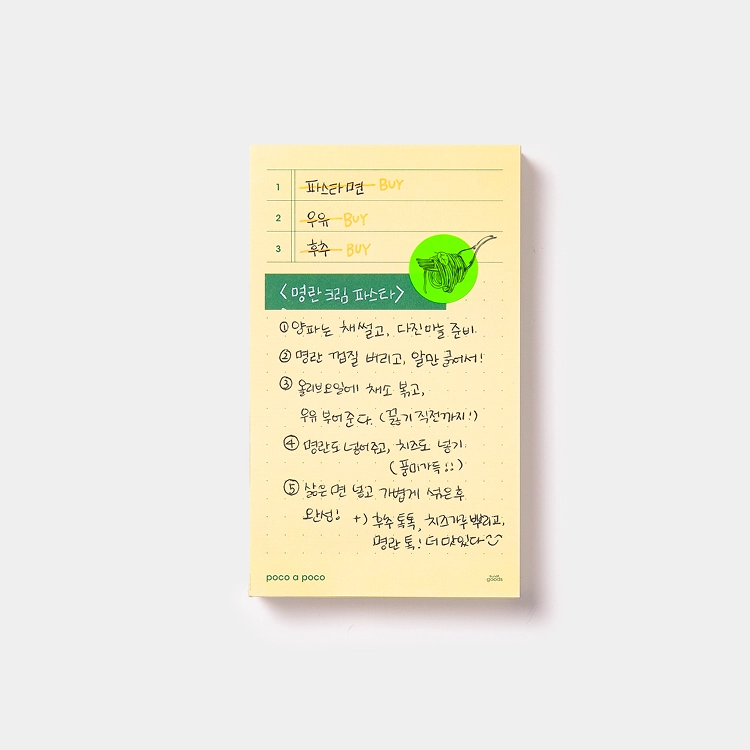 1 파스타면 BUY
2 우유 BUY
3 후추 BUY
<명란크림 파스타>
①양파는 채썰고, 다진마늘 준비.
②명란 껍질 버리고, 알만 긁어서!
③ 올리브오일에 채소 볶고,
우유 부어준다. (끓기 직전까지!)
④ 명란도 넣어주고, 치즈도 넣기.
(풍미가득!!)
⑤ 삶은 면 넣고 가볍게 섞은후
완성! +) 후추톡톡, 치즈가루 뿌리고,
명란 톡! 더 맛있다
poco a poco
goods